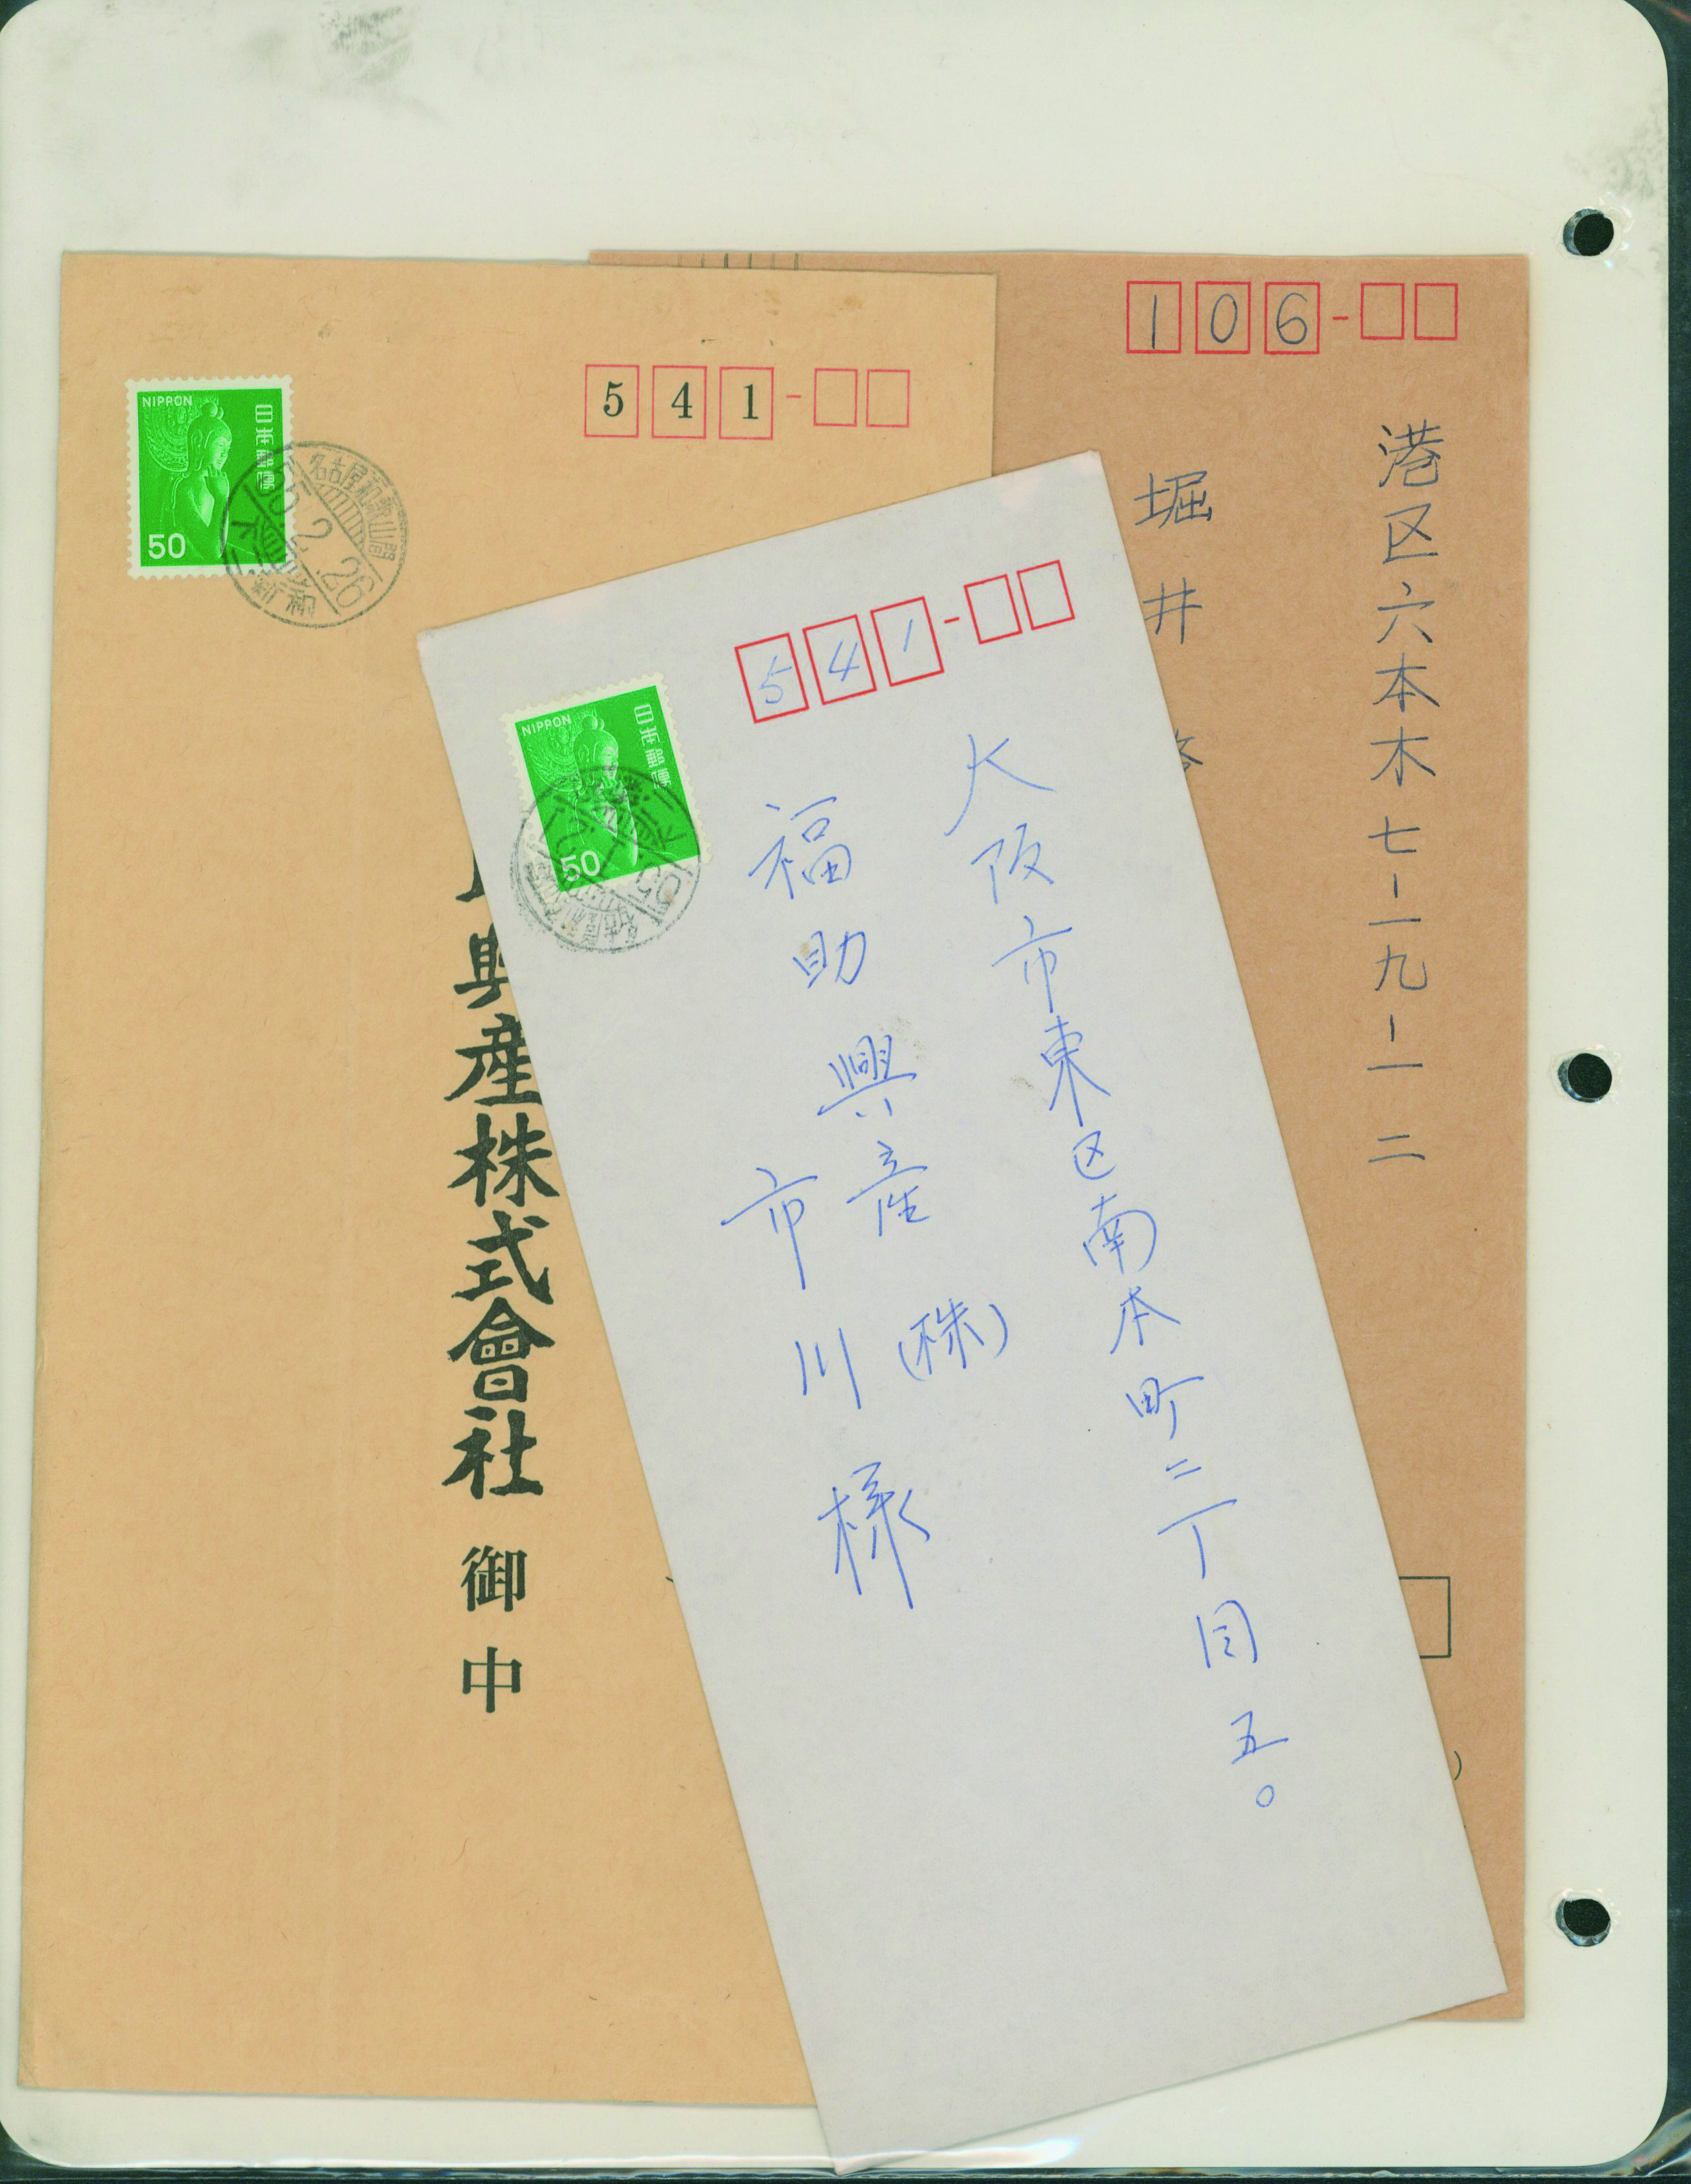 106
港区六本木七-一九-一二
堀井
541
NIPPON
日本郵便
50
名古屋和歌山間
55.2.26
興産株式會社 御中
541
NIPPON
日本郵便
50
大阪市東区南本町二丁目五。
福助興産(株)
市川様